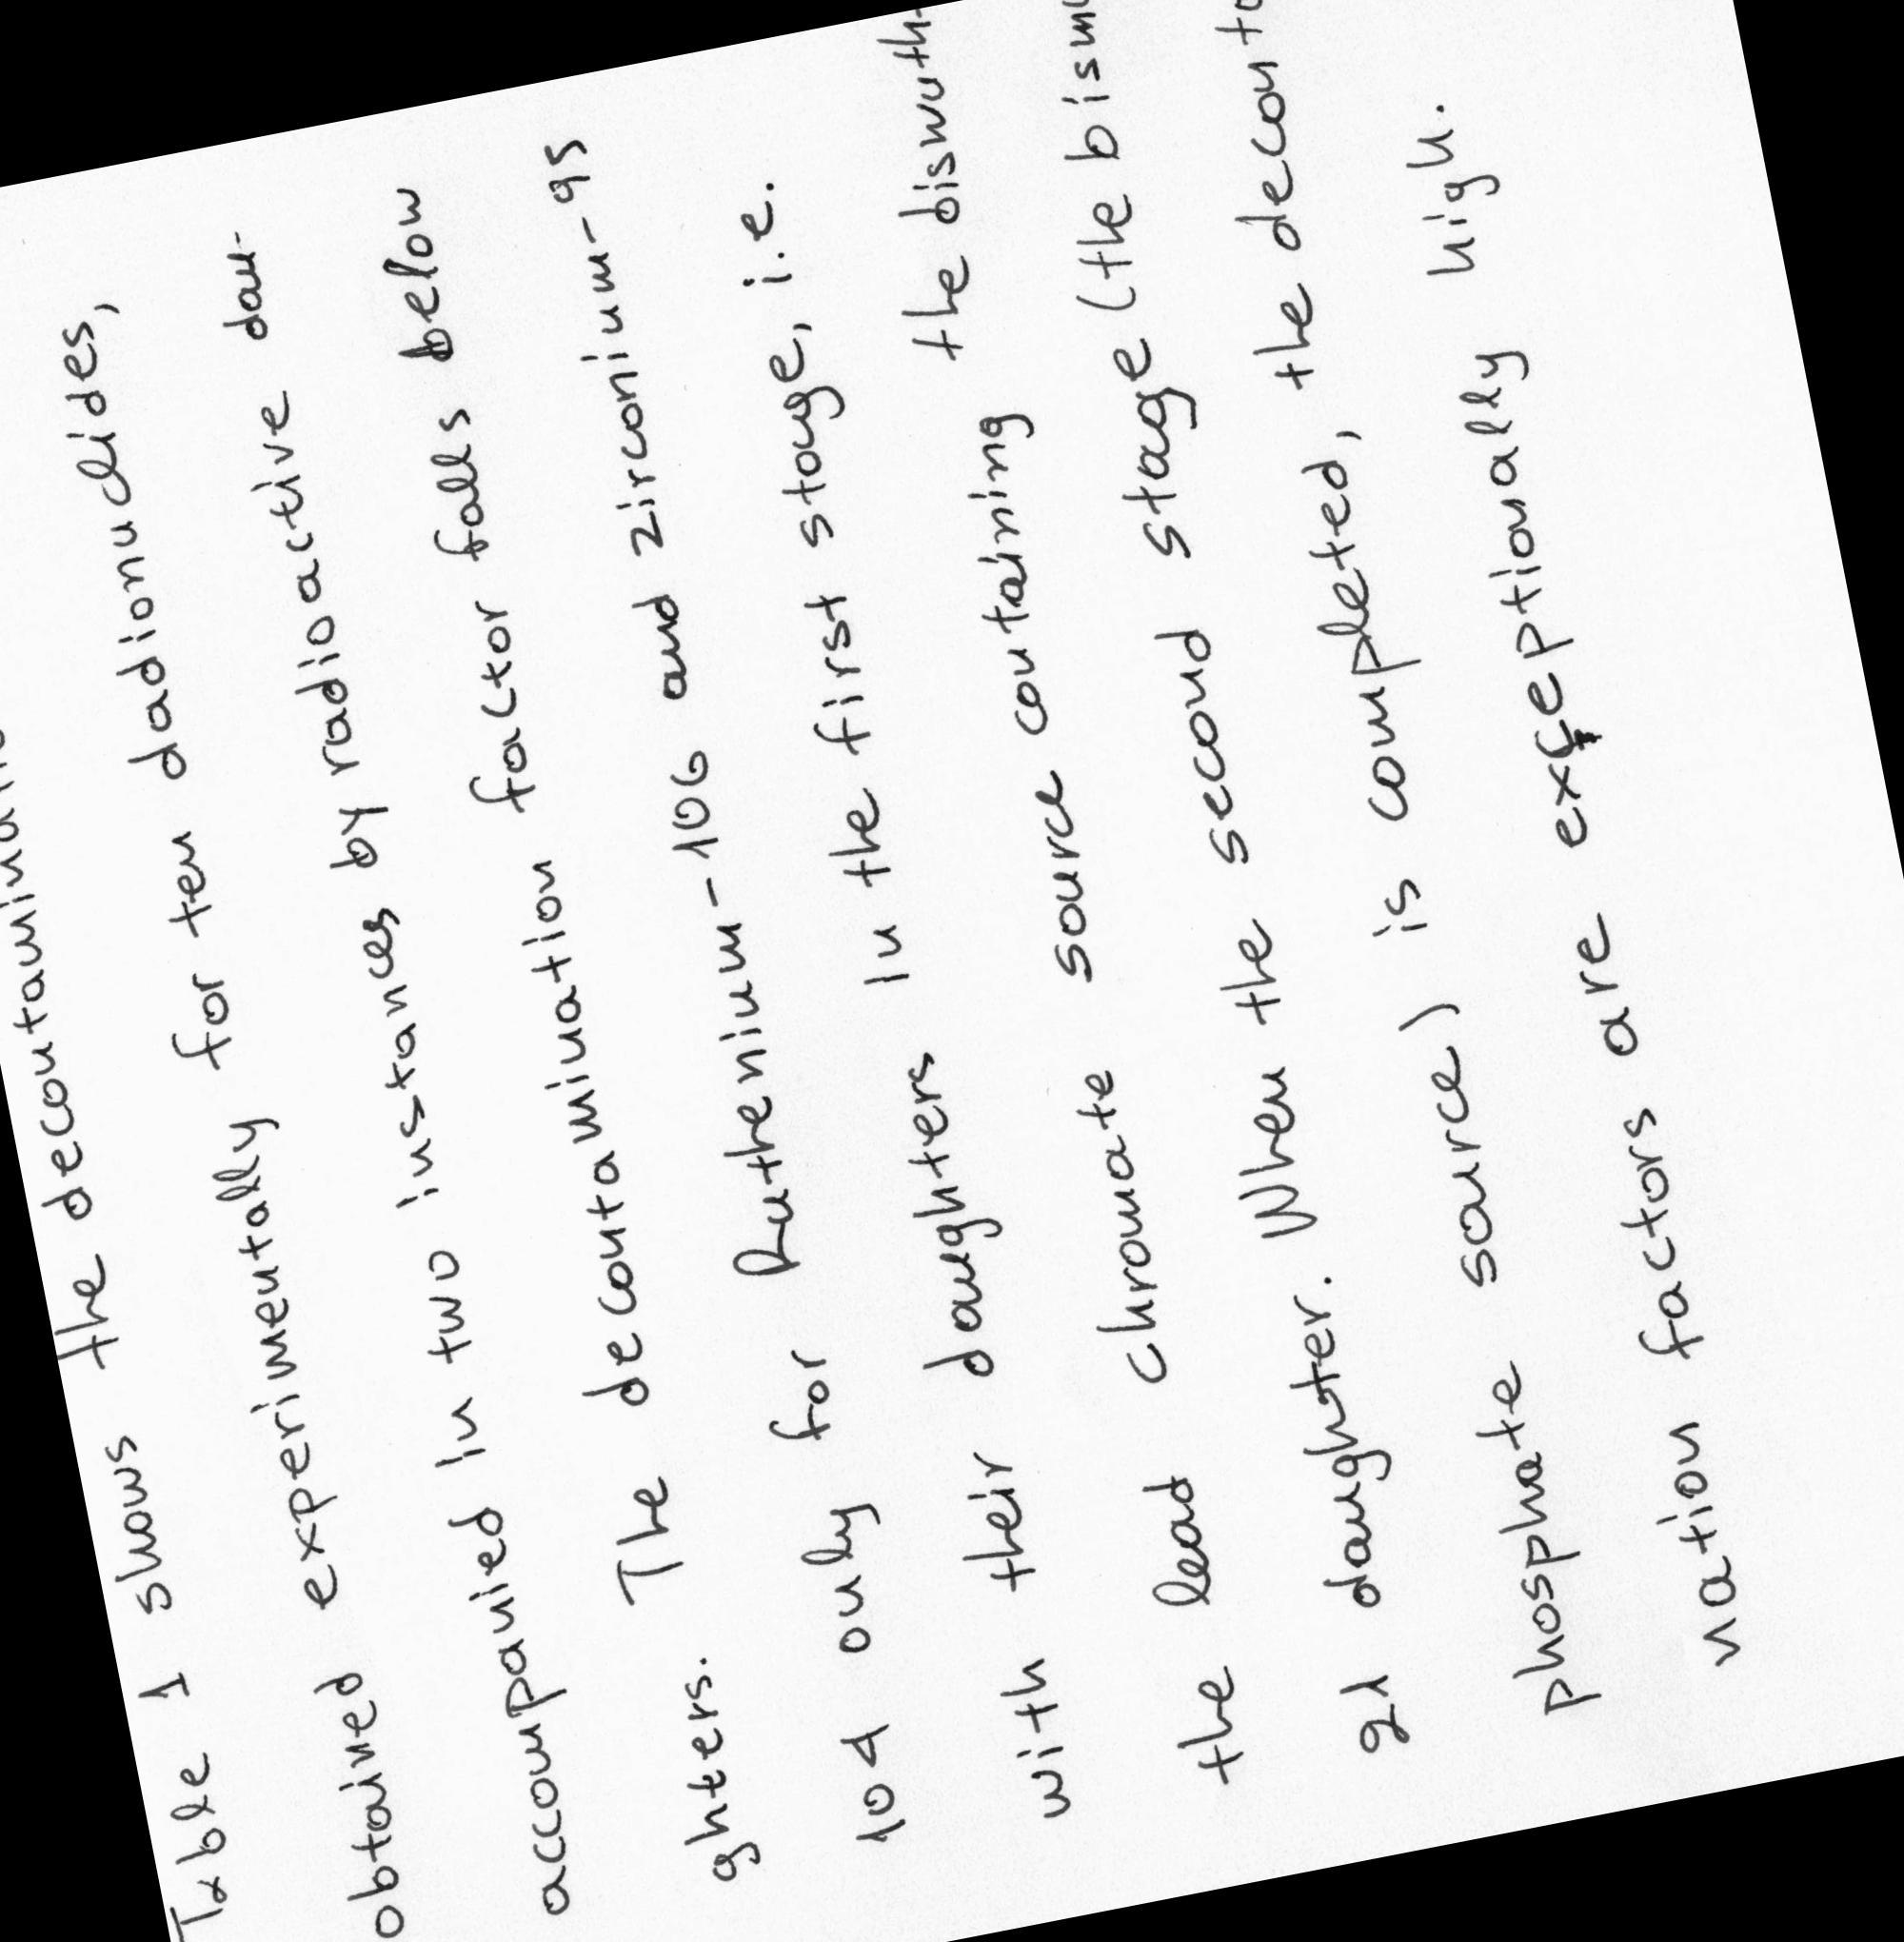 Table 1 shows the decontamina
obtained experimentally for ten dadionuclides,
accompanied in two instances by radioactive dau-
ghters. The decontamination factor falls below
104 only for Ruthenium-106 and zirconium-95
with their daughters in the first stage, i.e.
the lead chromate source containing the bismuth-
21 daughter. When the second stage (the bism
phosphate source) is completed, the deconta
nation factors are exceptionally high.